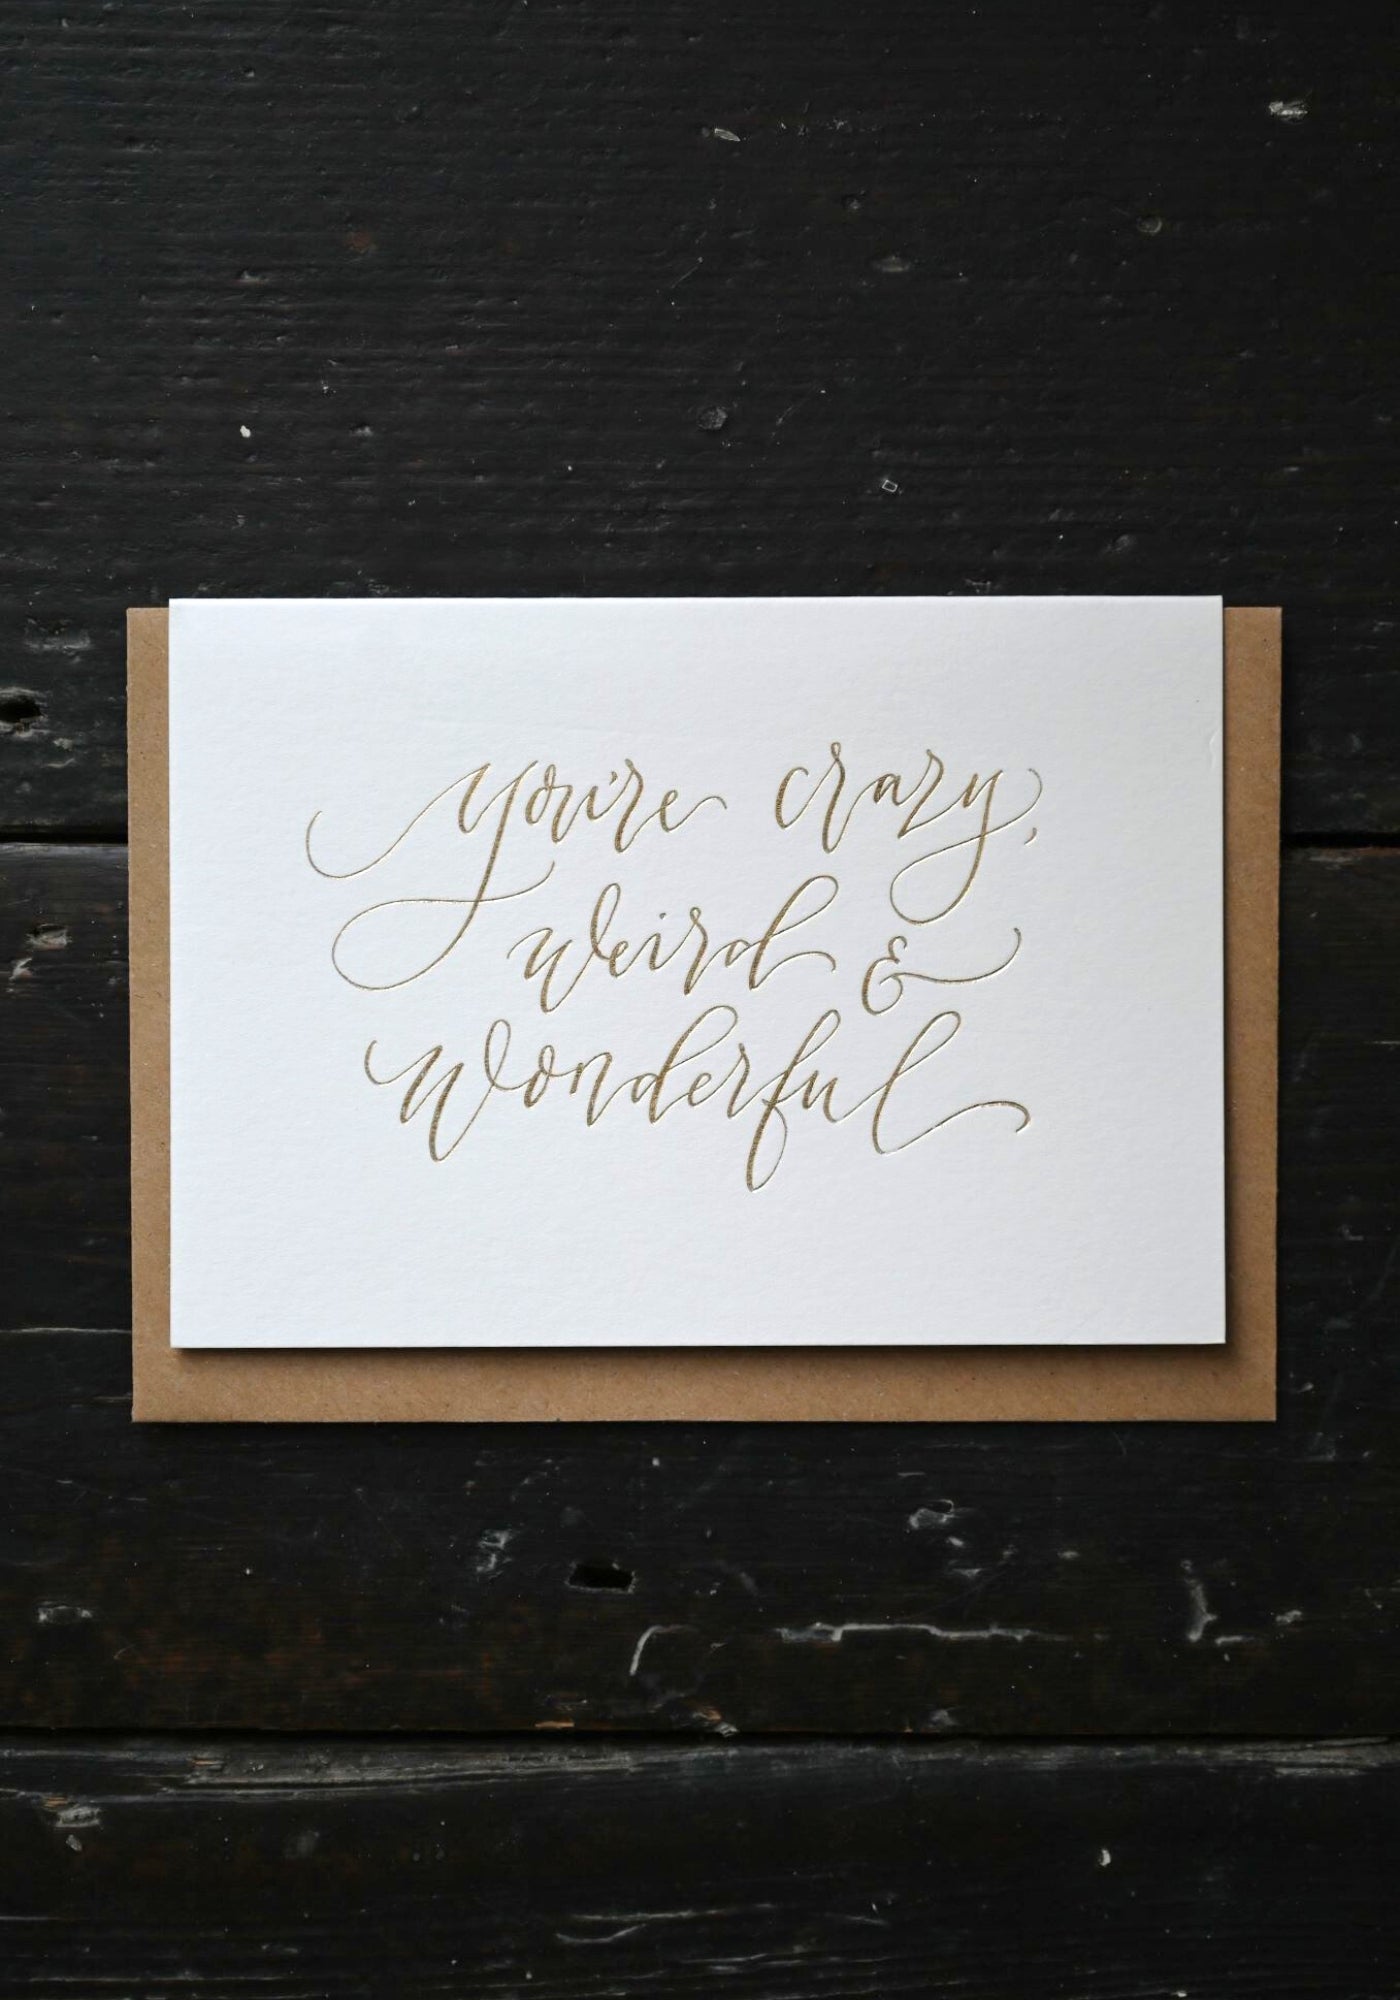 you're crazy,
weird &
wonderful